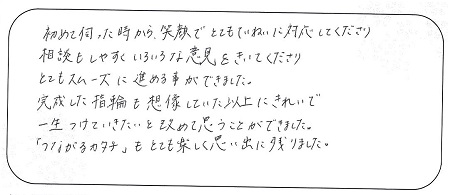 初めて伺った時から、笑顔でとてもていねいに対応してくださり
相談もしやすくいろいろな意見をきいてくださり
とてもスムーズに進める事ができました。
完成した指輪も想像していた以上にきれいで
一生つけていきたいと改めて思うことができました。
「つながるカタチ」もとても楽しく思い出に残りました。